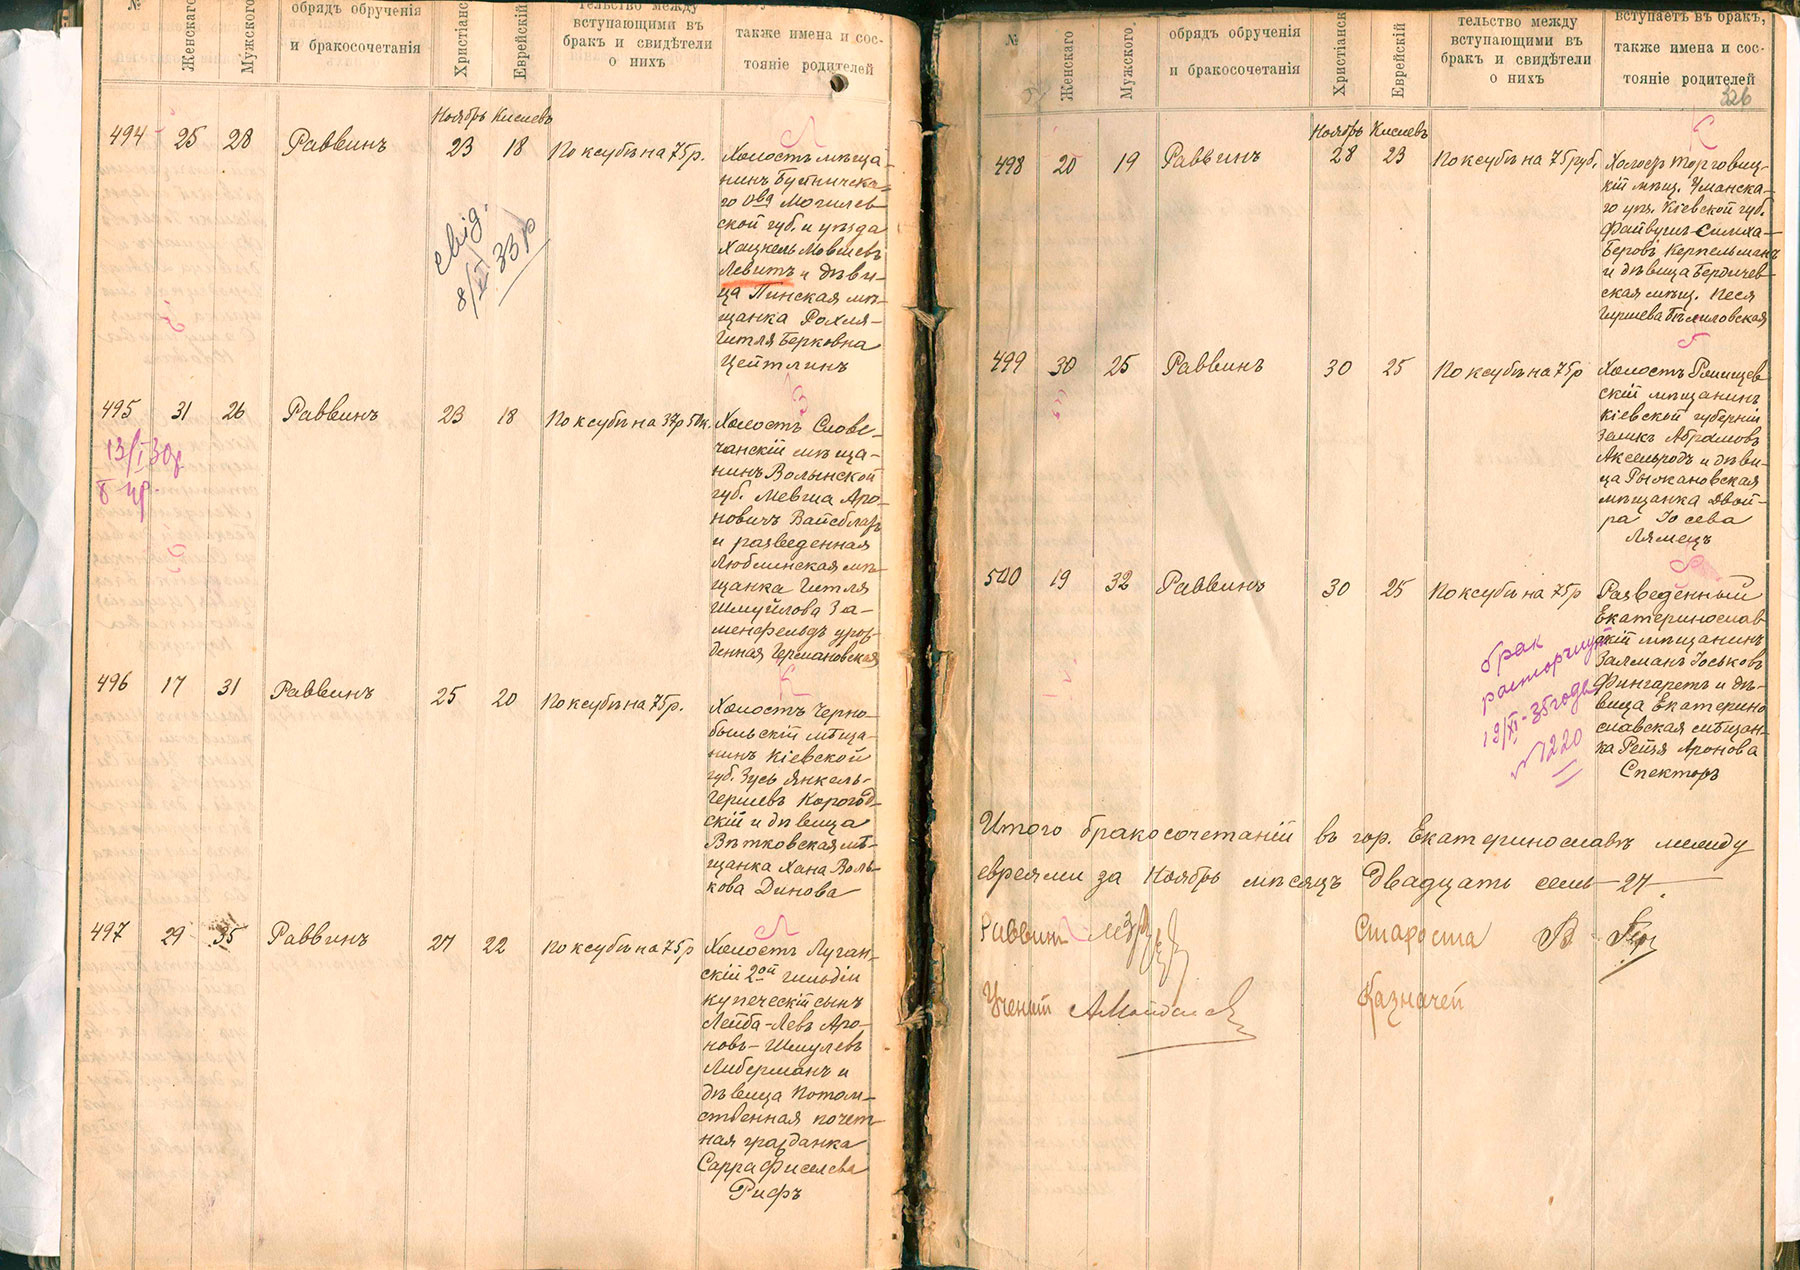 №
Женскаго
Мужского
обрядъ обрученія
и бракосочетанія
Христіанск
Еврейскій
тельство между
вступающими въ
бракъ и свидѣтели
о нихъ
также имена и сос-
тояніе родителей
Ноябрь Кислевъ
494 25 28 Раввинъ 23 18 По ксубѣ на 75 р.
Холостъ мѣща-
нинъ
го Могилев
ской губ. и уѣзда
Хацкель Мовшевъ
Левитъ и дѣви-
ца Пинская мѣ-
щанка Рохля-
Гитля Берковна
Цейтлинъ
свід.
8/XI 33 р
495 31 26 Раввинъ 23 18 По ксубѣ на 37 р 50 к.
13/I 30 р
Холостъ Слове-
чанскій мѣща-
нинъ Волынской
губ. Мевша Аро-
новичъ Вайсблатъ
и разведенная
Люблинская мѣ-
щанка Гитля
Шмуйлова За-
менфельдъ урож-
денная Германовская
496 17 31 Раввинъ 25 20 По ксубѣ на 75 р.
Холостъ Черно-
быльскій мѣща-
нинъ Кіевской
губ. Зусь Янкель-
Гершевъ Корогод-
скій и дѣвица
Вѣтковская мѣ-
щанка Хана Воль-
кова Динова
497 29 35 Раввинъ 27 22 По ксубѣ на 75 р
Холостъ Луган-
скій 2ой гильдіи
купеческій сынъ
Лейба-Левъ Аро-
новъ-Шмулевъ
Либерманъ и
дѣвица потом-
ственная почет-
ная гражданка
Сарра Фиселева
Рифъ
№
Женскаго
Мужского
обрядъ обрученія
и бракосочетанія
Христіанск
Еврейскій
тельство между
вступающими въ
бракъ и свидѣтели
о нихъ
вступаетъ въ бракъ,
также имена и сос-
тояніе родителей
326
Ноябрь Кислевъ
498 20 19 Раввинъ 28 23 По ксубѣ на 75 руб.
Холостъ Торговиц-
кій мѣщ. Уманска-
го уѣз. Кіевской губ.
Файвушъ-Симха-
Беровъ Керпельманъ
и дѣвица Бердичев-
ская мѣщ. Песя
Гиршева Бѣлиловская
499 30 25 Раввинъ 30 25 По ксубѣ на 75 р
Холостъ
скій мѣщанинъ
Кіевской губерніи
Зеликъ Абрамовъ
Аксельродъ и дѣви-
ца Рыжановская
мѣщанка Двой-
ра Іосева
Лямецъ
500 19 32 Раввинъ 30 25 По ксубѣ на 75 р
Разведенный
Екатеринослав
скій мѣщанинъ
Залманъ Іоськовъ
Фингаретъ и дѣ-
вица Екатерино
славская мѣщан-
ка Рейзя Аронова
Спекторъ
брак
расторгнут
19/XI-35 года
№ 1220
Итого бракосочетаній въ гор. Екатеринославѣ между
евреями за Ноябрь мѣсяцъ двадцать семь-27-.
Раввинъ
Староста
Ученый
Казначей